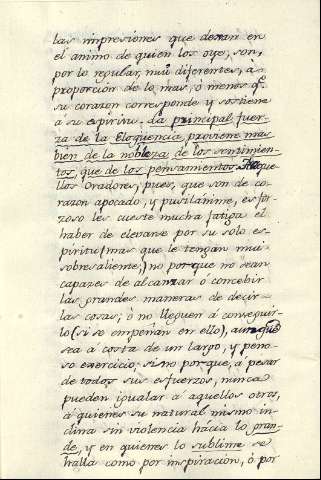 las impresiones que dexan en
el animo de quien los oye, son,
por lo regular, mui diferentes, à
proporcion de lo mas, ò menos q.e
su corazon corresponde y sostiene
á su espiritu. La principal fuer-
za de la Eloqüencia proviene mas
bien de la nobleza de los sentimien-
tos, que de los pensamientos. Aque-
llos Oradores, pues, que son de co-
razon apocado, y pusilanime, es for-
zoso les cueste mucha fatiga el
haber de elevarse por su solo es-
piritu (mas que le tengan mui
sobresaliente,) no porque no sean
capazes de alcanzar ó concebir
las grandes maneras de decir
las cosas; ó no lleguen à conseguir-
lo (si se empeñan en ello), aunque
sea á costa de un largo, y peno-
so exercicio; si no porque, á pesar
de todos sus esfuerzos, nunca
pueden igualar a aquellos otros,
á quienes su natural mismo in-
clina sin violencia hácia lo gran-
de, y en quienes lo sublime se
halla como por inspiración, ó por